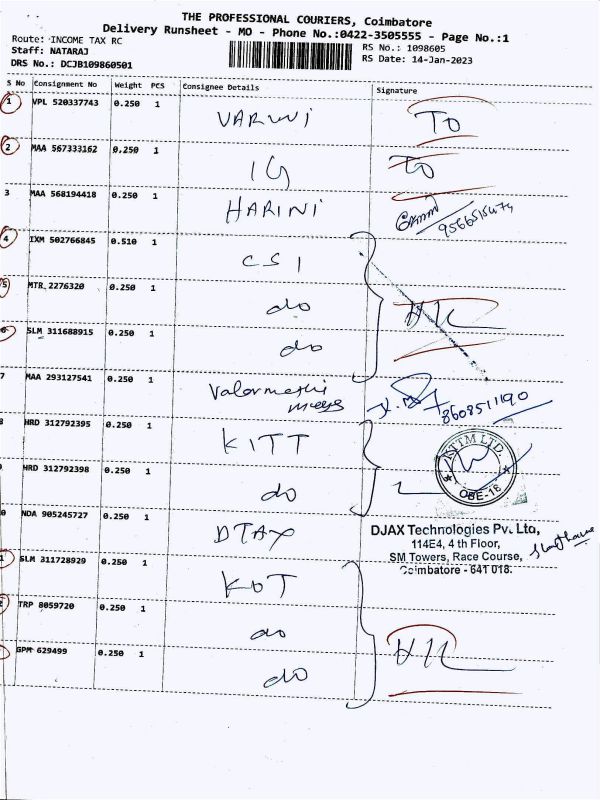 THE PROFESSIONAL COURIERS, Coimbatore
Delivery Runsheet - MO - Phone No.:0422-3505555 - Page No.:1
Route: INCOME TAX RC
RS No.: 1098605
Staff: NATARAJ
RS Date: 14-Jan-2023
DRS No.: DCJB109860501
S No Consignment No Weight PCS Consignee Details Signature
1 VPL 520337743 0.250 1 VARUNI TO
2 MAA 567333162 0.250 1 IG TO
3 MAA 568194418 0.250 1 HARINI
4 IXM 502766845 0.510 1 CSI
5 MTR 2276320 0.250 1 do
SLM 311688915 0.250 1 do
7 MAA 293127541 0.250 1 8608511190
HRD 312792395 0.250 1 KITT
KTTM LTD.
OBE-18
HRD 312792398 0.250 1 do
NDA 905245727 0.250 1 DTAX
DJAX Technologies Pvt. Ltd,
114E4, 4 th Floor,
SM Towers, Race Course,
Coimbatore - 641 018.
SLM 311728929 0.250 1 KOT
TRP 8059720 0.250 1 do
GPM 629499 0.250 1 do